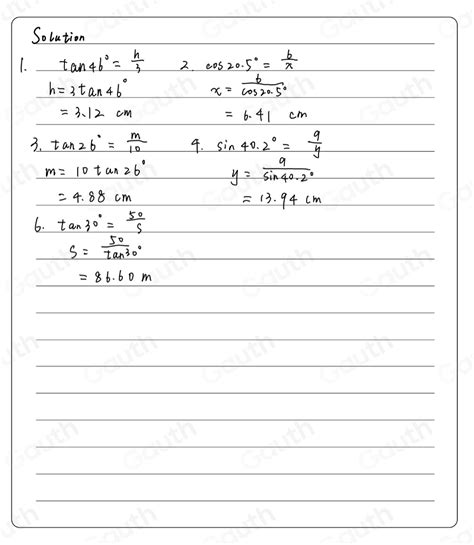 Solution
1. tan46° = h/3
h = 3tan46°
= 3.12 cm
2. cos20.5° = 6/x
x = 6/cos20.5°
= 6.41 cm
3. tan26° = m/10
m = 10tan26°
= 4.88 cm
4. sin40.2° = 9/y
y = 9/sin40.2°
= 13.94 cm
6. tan30° = 50/S
S = 50/tan30°
= 86.60 m
Gauth